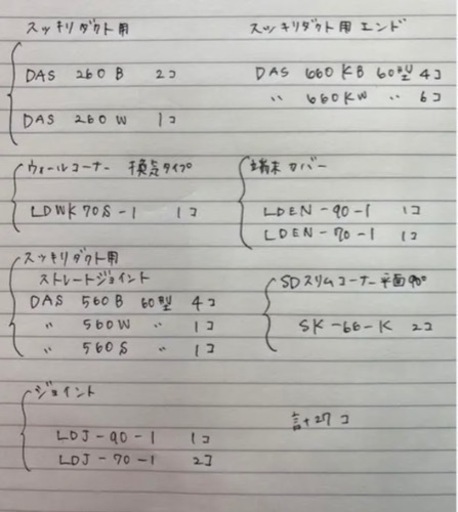 スッキリダクト用
DAS 260B 2コ
DAS 260W 1コ
スッキリダクト用 エンド
DAS 660KB 60型 4コ
〃 660KW 〃 6コ
ウォールコーナー 換気タイプ
LDWK70S-1 1コ
端末カバー
LDEN-90-1 1コ
LDEN-70-1 1コ
スッキリダクト用
ストレートジョイント
DAS 560B 60型 4コ
〃 560W 〃 1コ
〃 560S 〃 1コ
SDスリムコーナー平面90°
SK-66-K 2コ
ジョイント
LDJ-90-1 1コ
LDJ-70-1 2コ
計27コ